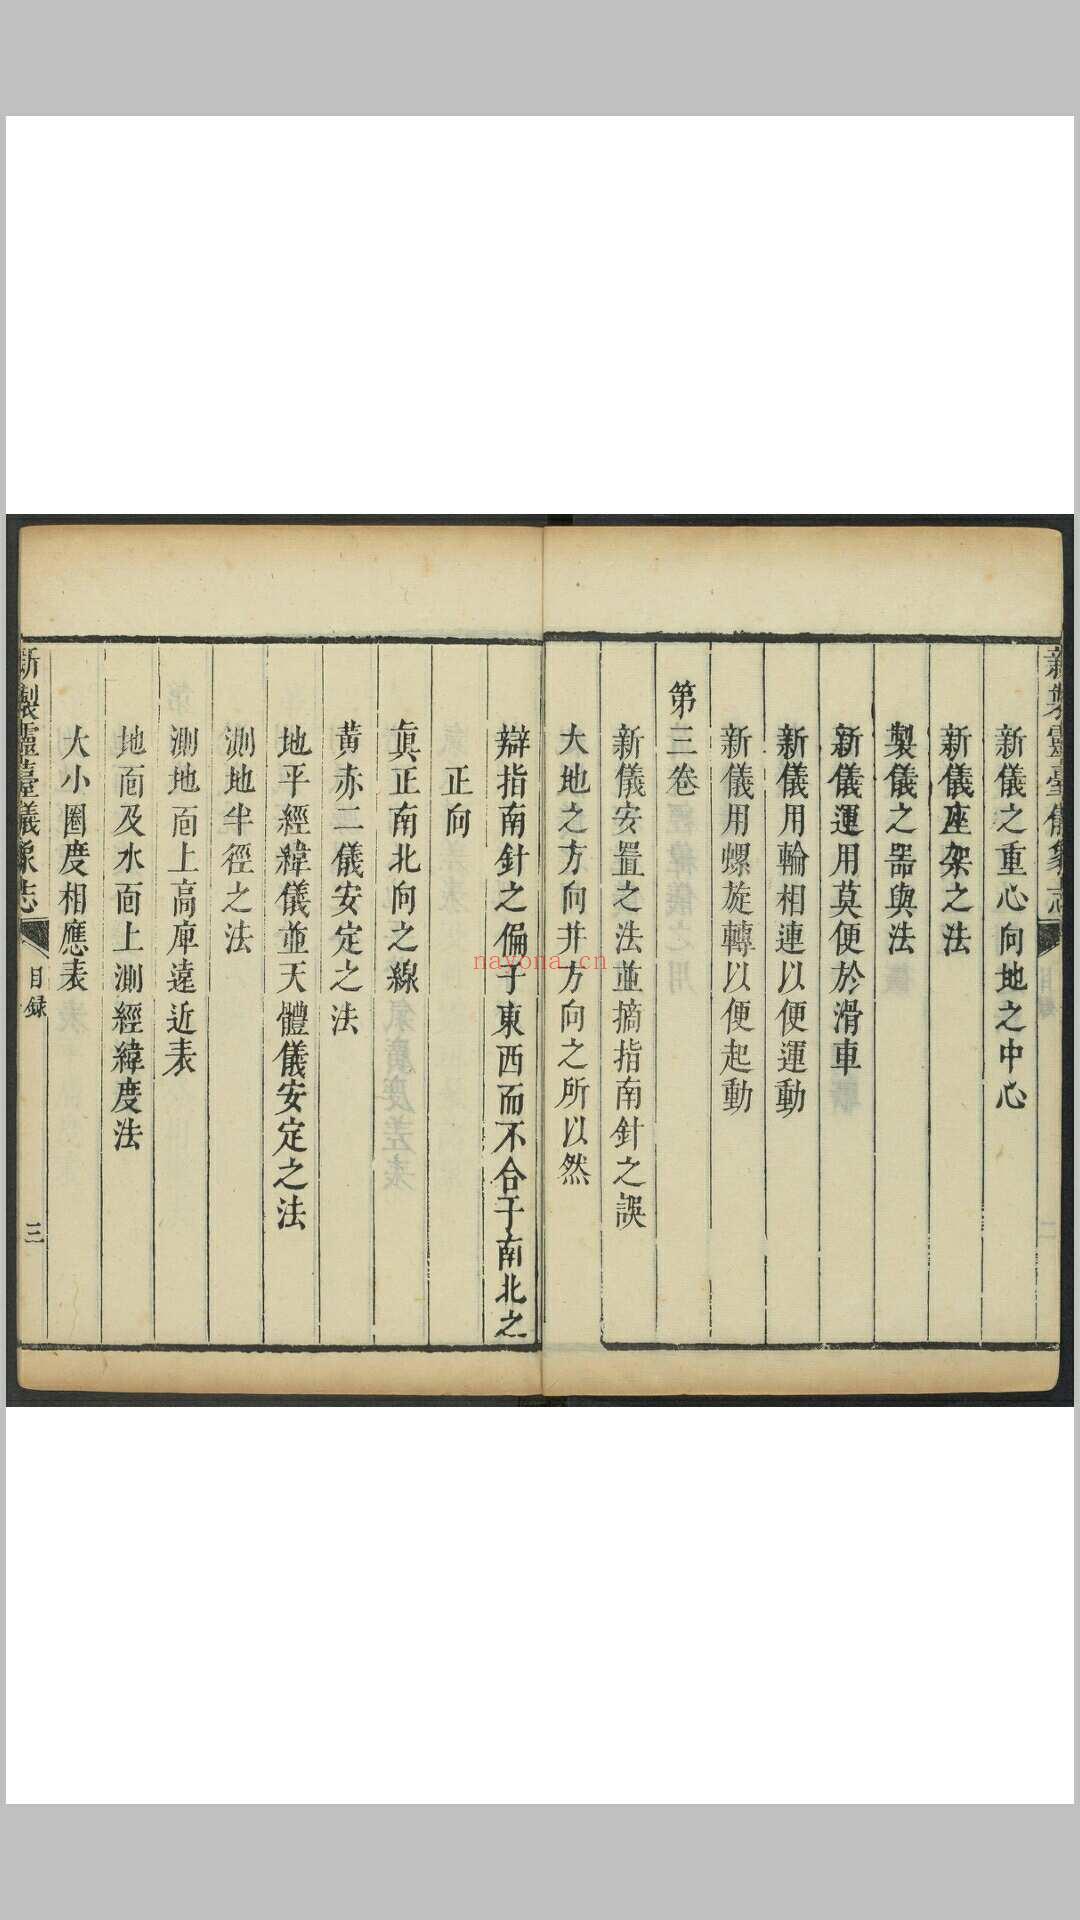 新製靈臺儀象志
新儀之重心向地之中心
新儀座架之法
製儀之器與法
新儀運用莫便於滑車
新儀用輪相連以便運動
新儀用螺旋轉以便起動
第三卷
新儀安置之法並摘指南針之誤
大地之方向并方向之所以然
辯指南針之偏于東西而不合于南北之
正向
眞正南北向之線
黄赤二儀安定之法
地平經緯儀並天體儀安定之法
測地半徑之法
測地面上高庳遠近表
地面及水面上測經緯度法
大小圈度相應表
新製靈臺儀象志
目録
三
nayona.cn